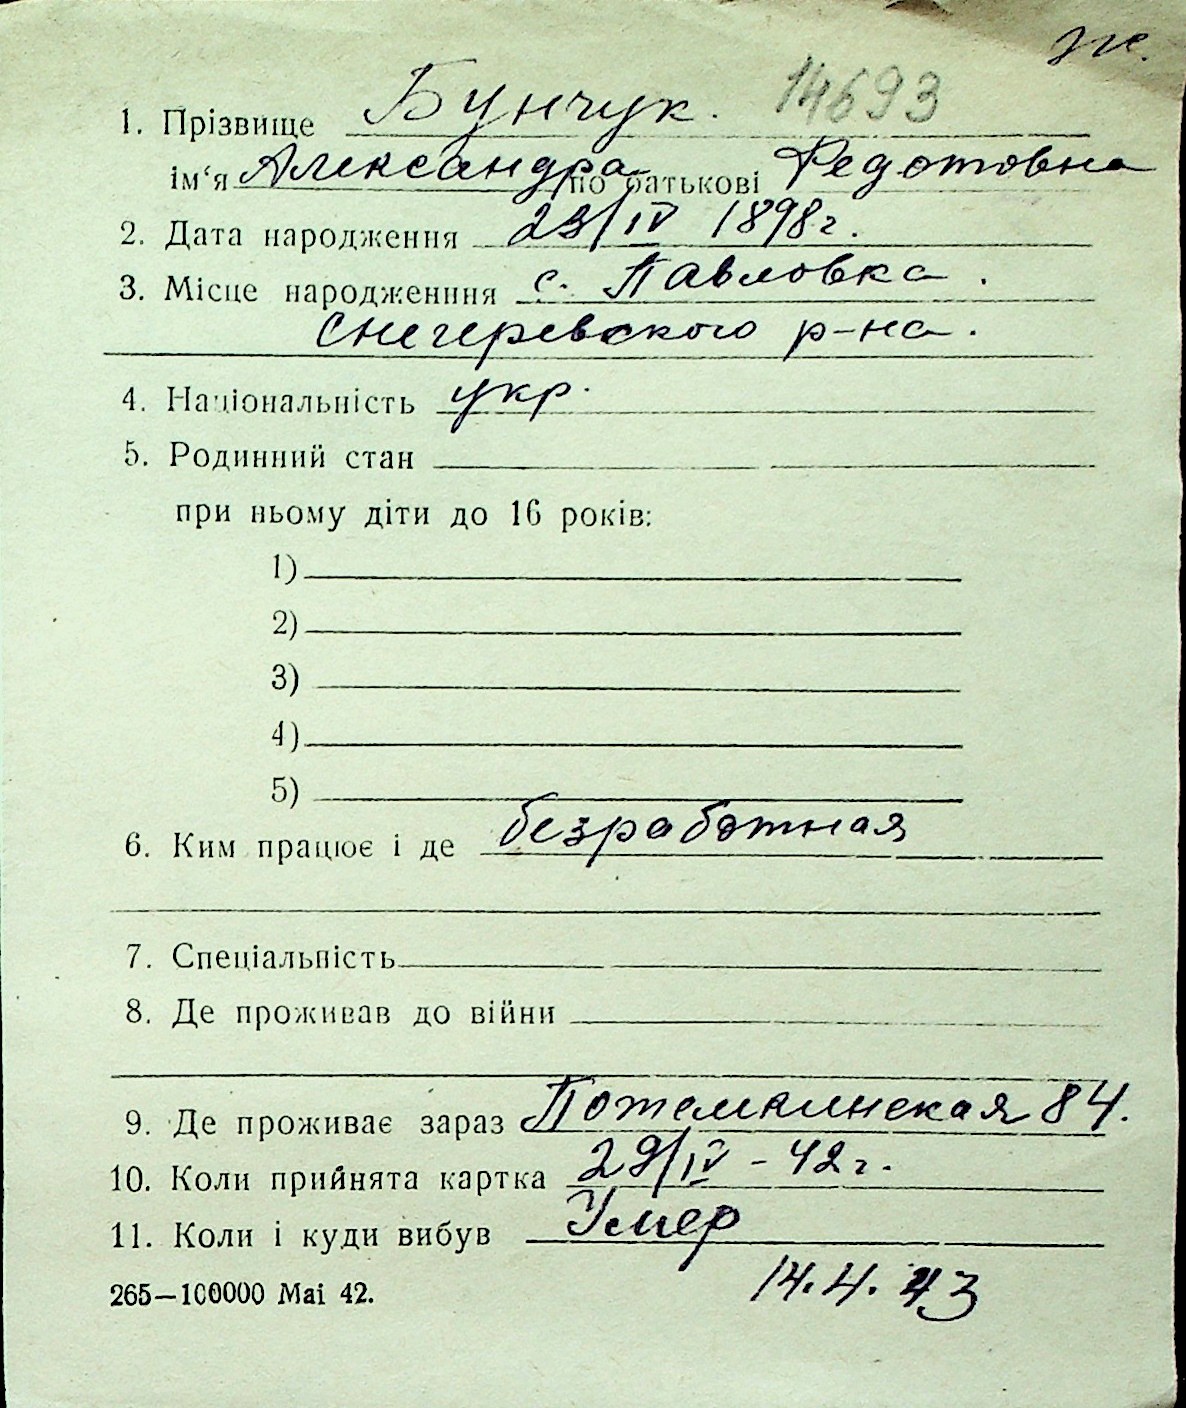 ж.
14693
1. Прізвище Бунчук.
ім‘я Александра по батькові Федотовна
2. Дата народження 23/IV 1898г.
3. Місце народженння с. Павловка.
Снегеревского р-на.
4. Національність укр.
5. Родинний стан
при ньому діти до 16 років:
1)
2)
3)
4)
5)
6. Ким працює і де безработная
7. Спеціальність
8. Де проживав до війни
9. Де проживає зараз Потемкинская 84.
10. Коли прийнята картка 29/IV - 42г.
11. Коли і куди вибув Умер
14.4.43
265—100000 Mai 42.